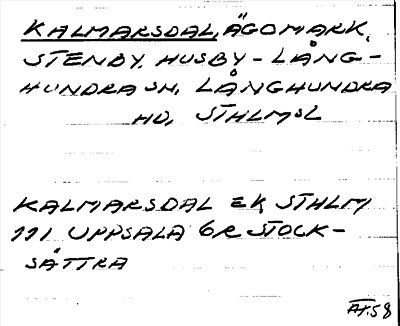 KALMARSDAL, ÄGOMARK,
STENBY. HUSBY-LÅNG-
HUNDRA SN, LÅNGHUNDRA
HD, STHLMSL
KALMARSDAL EK STHLM
111 UPPSALA 6R STOCK-
SÄTTRA